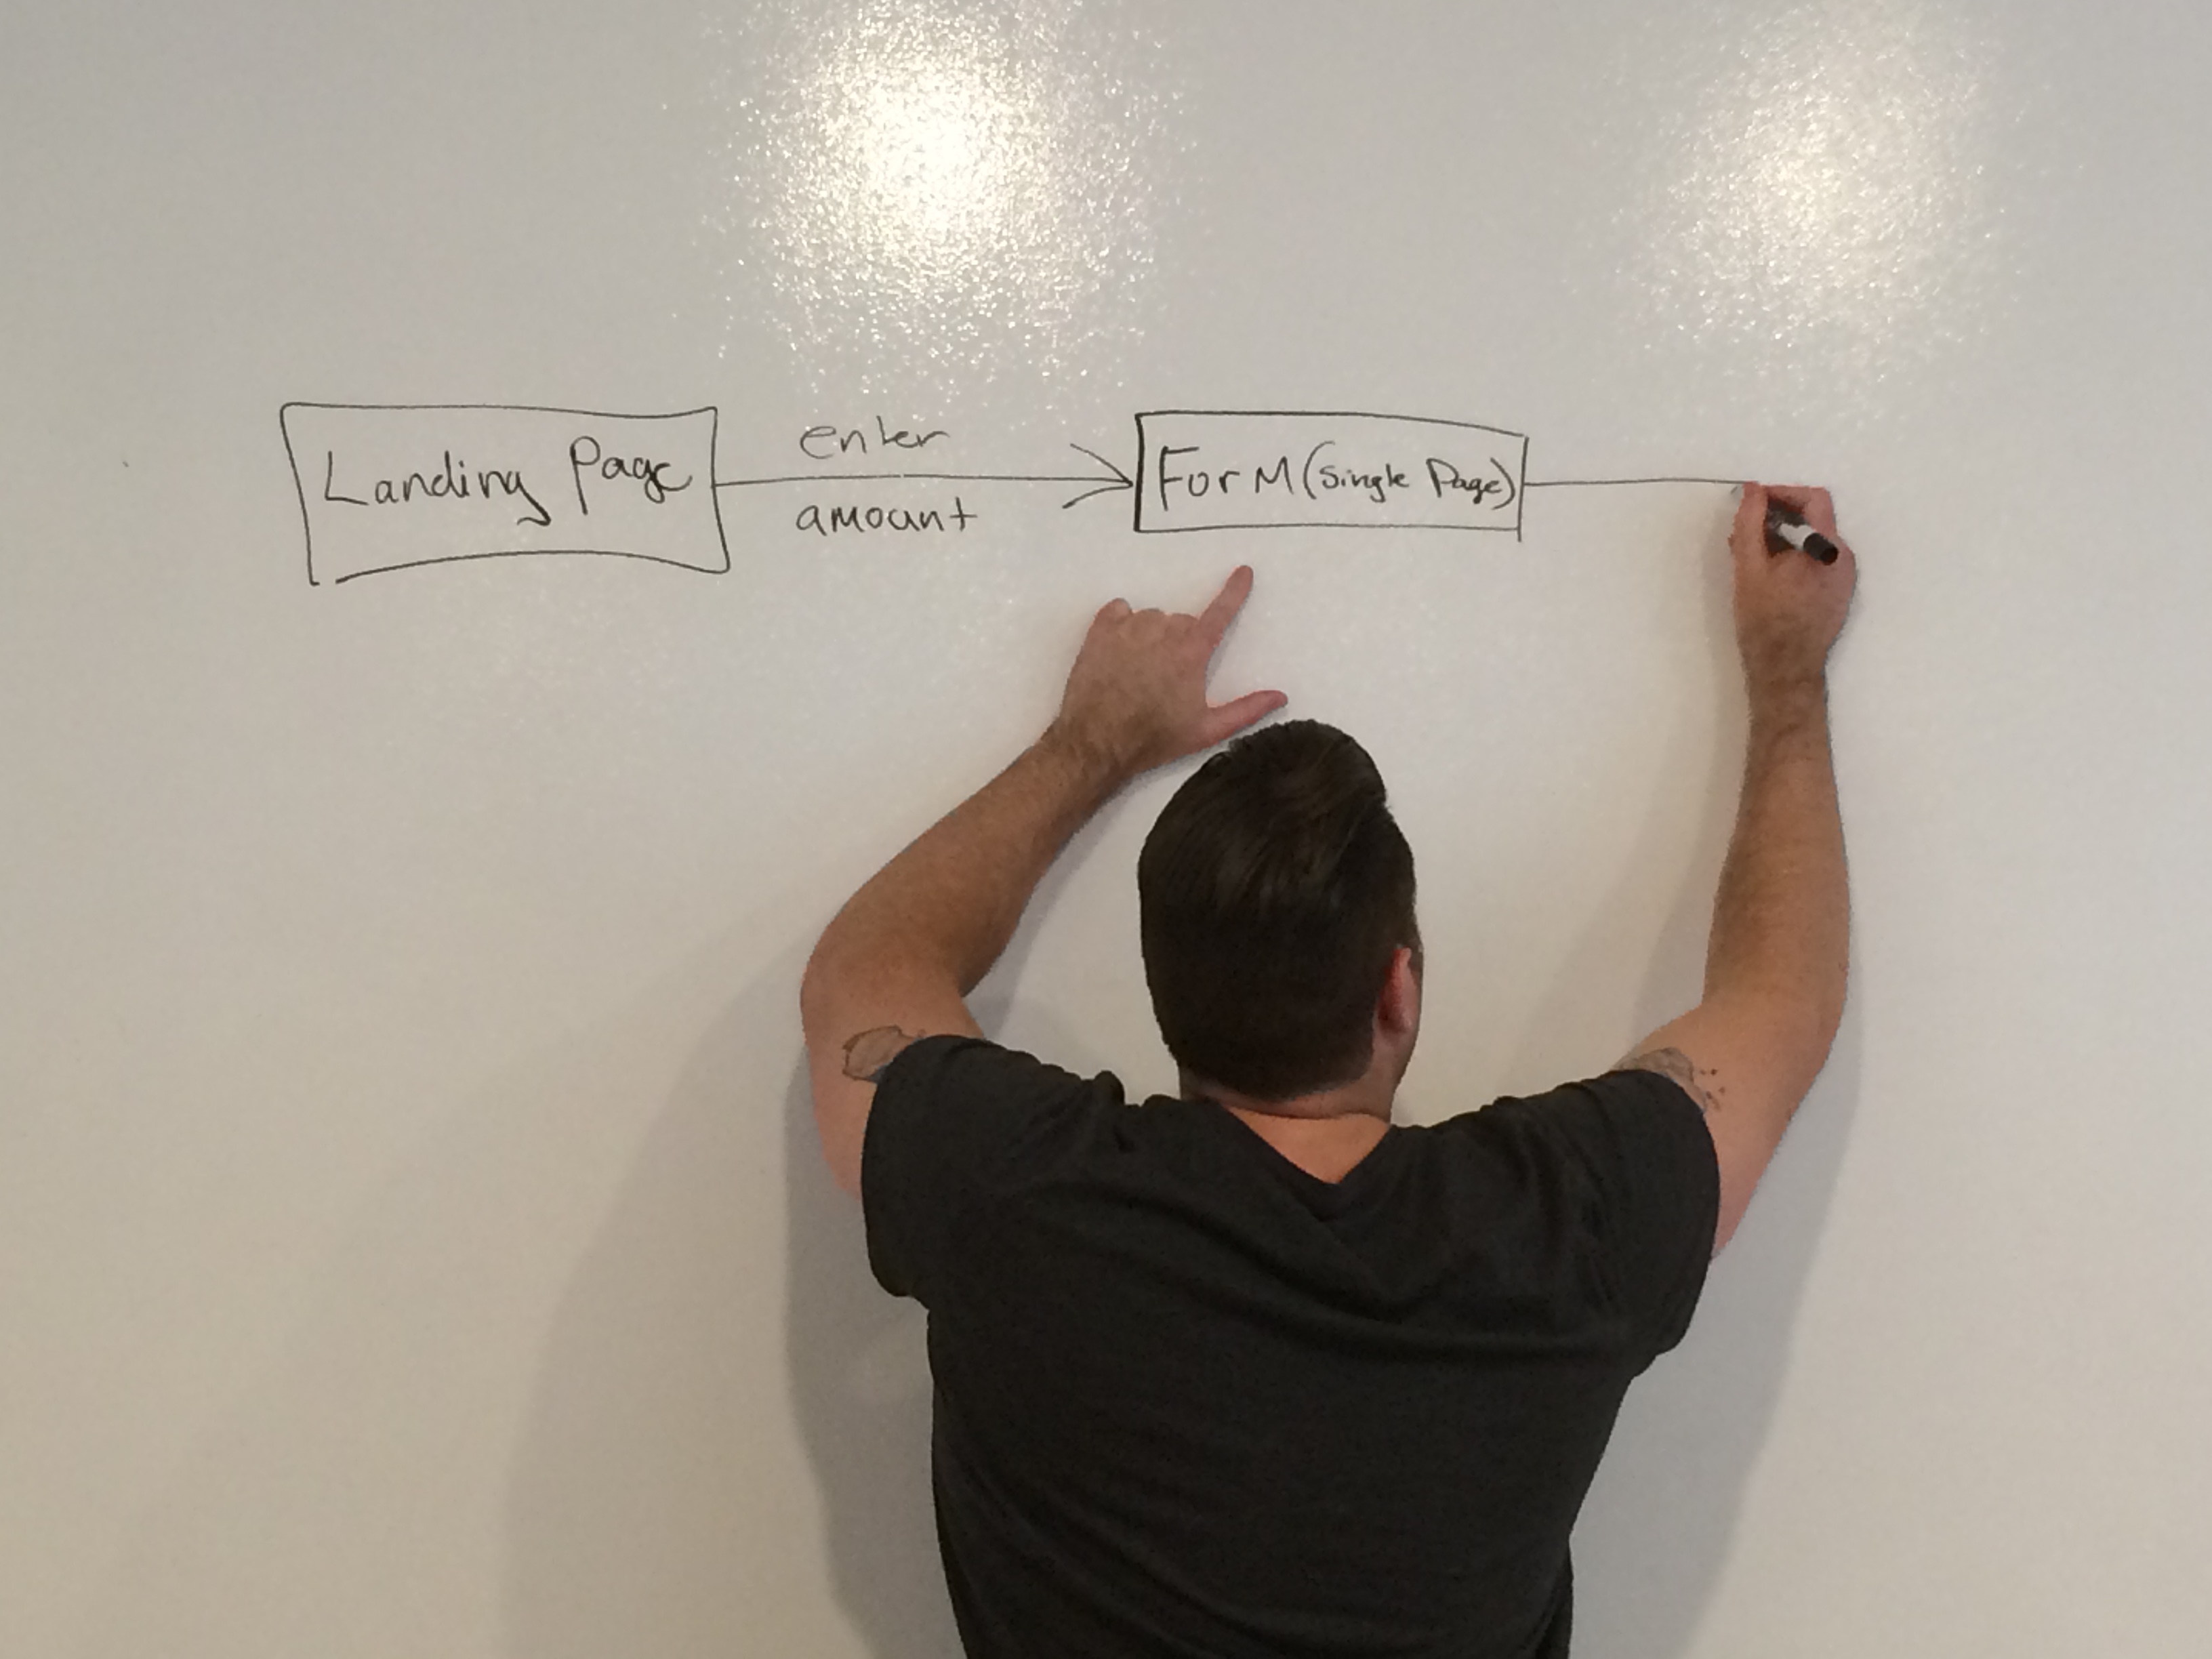 Landing Page
enter
amount
ForM (Single Page)